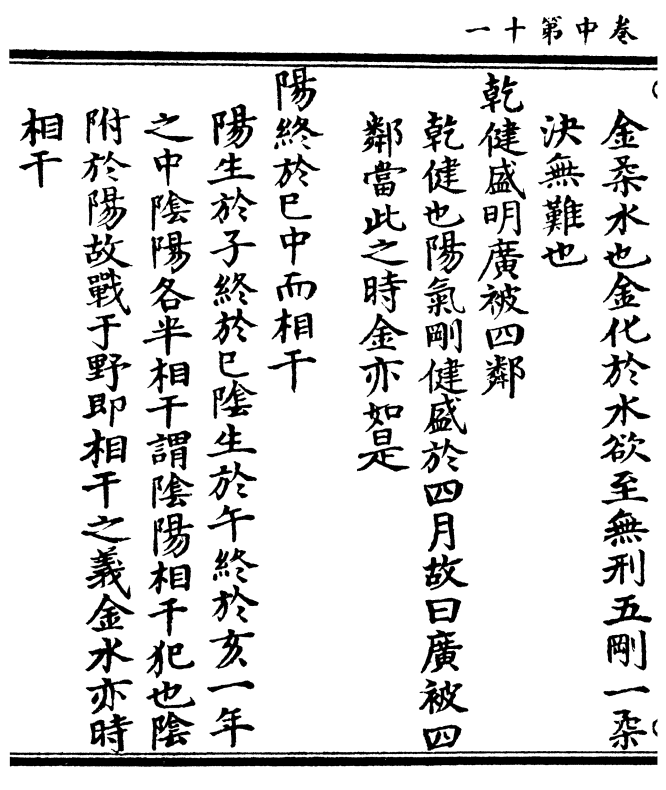 卷中第十一
金柔水也金化於水欲至無刑五剛一柔
決無難也
乾健盛明廣被四鄰
乾健也陽氣剛健盛於四月故曰廣被四
鄰當此之時金亦如是
陽終於巳中而相干
陽生於子終於巳陰生於午終於亥一年
之中陰陽各半相干謂陰陽相干犯也陰
附於陽故戰于野即相干之義金水亦時
相干